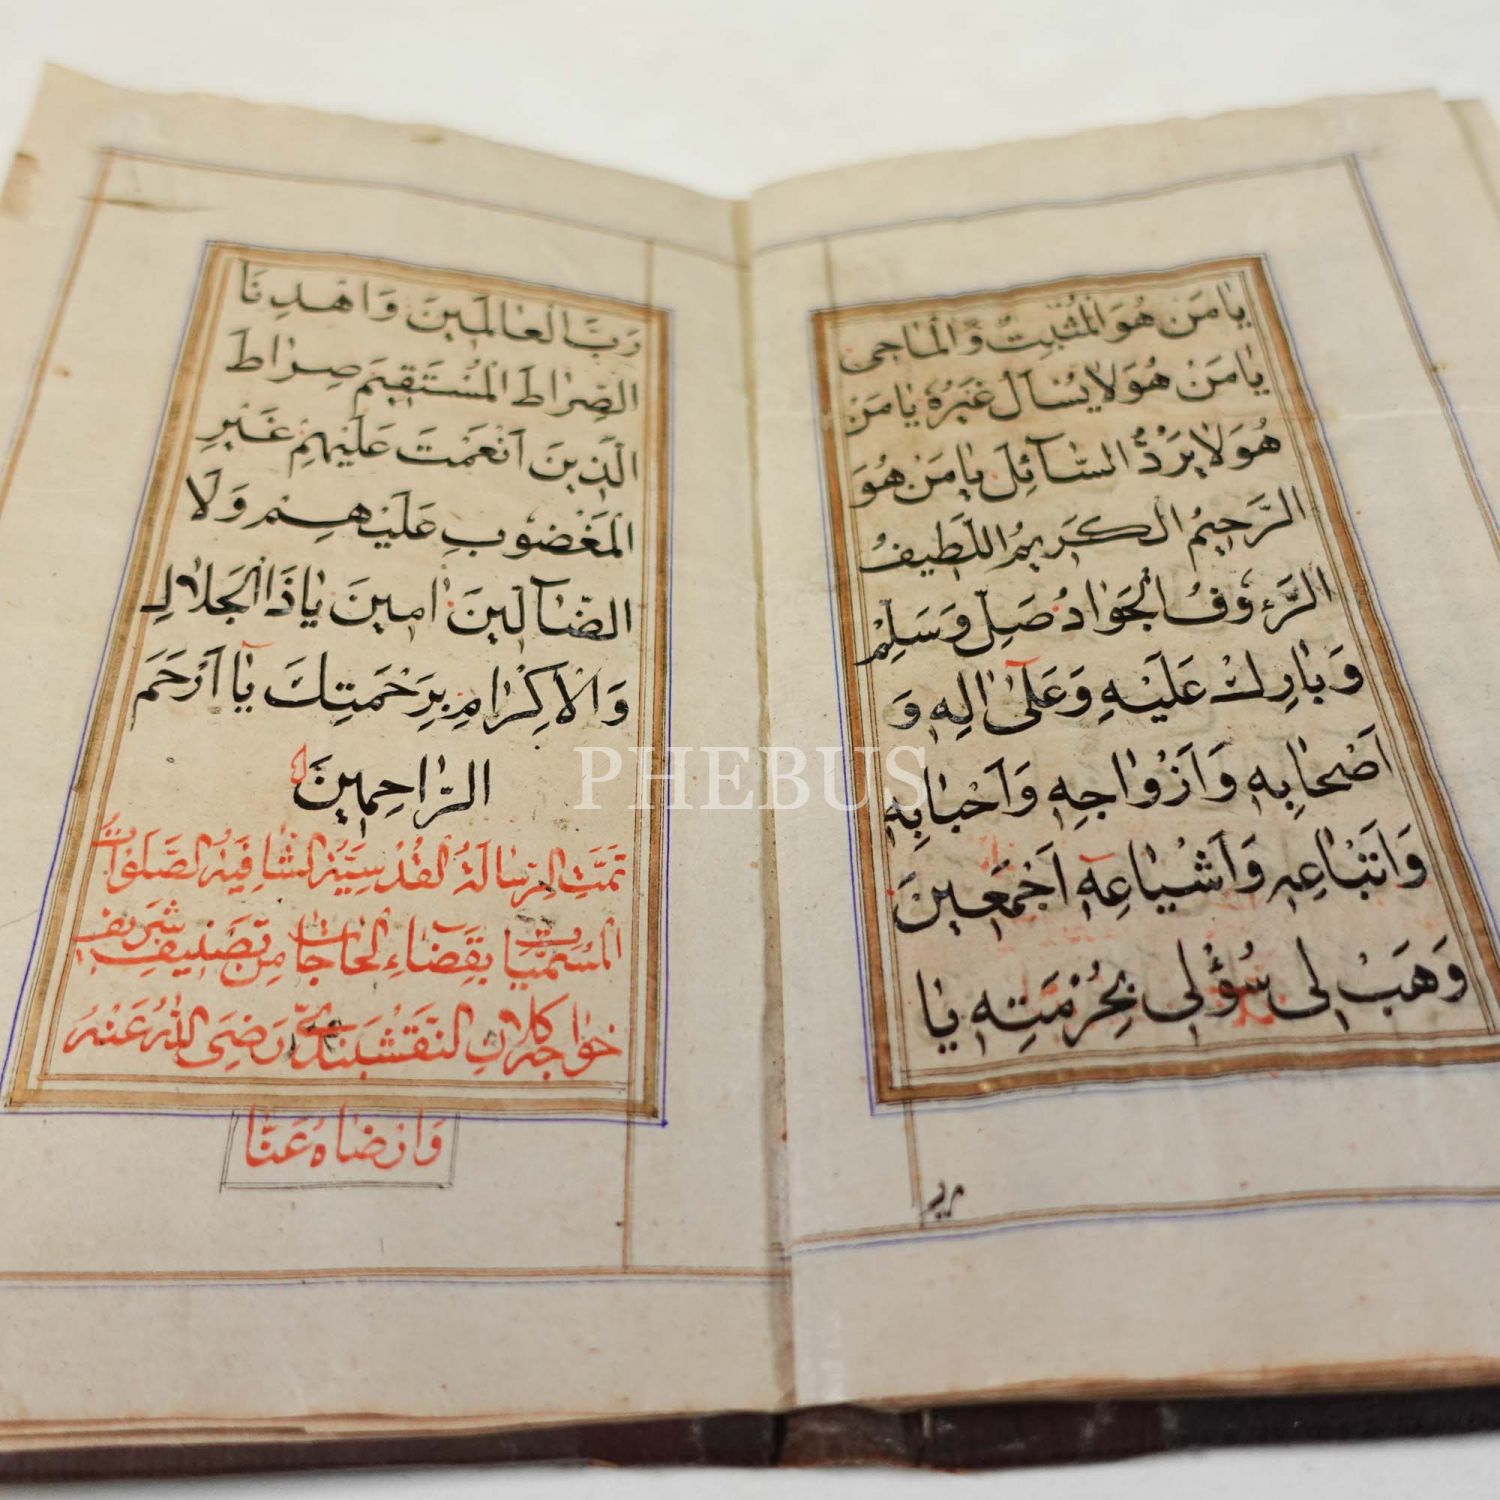 يَا مَنْ هُوَ الْمُثْبِتُ وَالْمَاحِى
يَا مَنْ هُوَ لَا يُسْأَلُ غَيْرُهُ يَا مَنْ
هُوَ لَا يَرُدُّ السَّآئِلَ يَا مَنْ هُوَ
الرَّحِيمُ الْكَرِيمُ اللَّطِيفُ
الرَّءُوفُ الْجَوَادُ صَلِّ وَسَلِّمْ
وَبَارِكْ عَلَيْهِ وَعَلَىٰ اٰلِهِ وَ
اَصْحَابِهِ وَاَزْوَاجِهِ وَاَحْبَابِهِ
وَاَتْبَاعِهِ وَاَشْيَاعِهِ اَجْمَعِينَ
وَهَبْ لِى سُؤْلِى بِحُرْمَتِهِ يَا
رب
رَبَّ الْعَالَمِينَ وَاهْدِنَا
الصِّرَاطَ الْمُسْتَقِيمَ صِرَاطَ
الَّذِينَ اَنْعَمْتَ عَلَيْهِمْ غَيْرِ
الْمَغْضُوبِ عَلَيْهِمْ وَلَا
الضَّآلِّينَ اٰمِينَ يَا ذَا الْجَلَالِ
وَالْاِكْرَامِ بِرَحْمَتِكَ يَا اَرْحَمَ
الرَّاحِمِينَ
تَمَّتِ الرِّسَالَةُ الْقُدْسِيَّةُ الشَّافِيَةُ الصَّلَوَاتُ
الْمُسَمَّيَاتُ بِقَضَاءِ الْحَاجَاتِ مِنْ تَصْنِيفِ شَرِيفِ
خواجه كلان النَّقْشْبَنْدِىّ رَضِىَ اللّٰهُ عَنْهُ
وَارْضَاهُ عَنَّا
PHEBUS